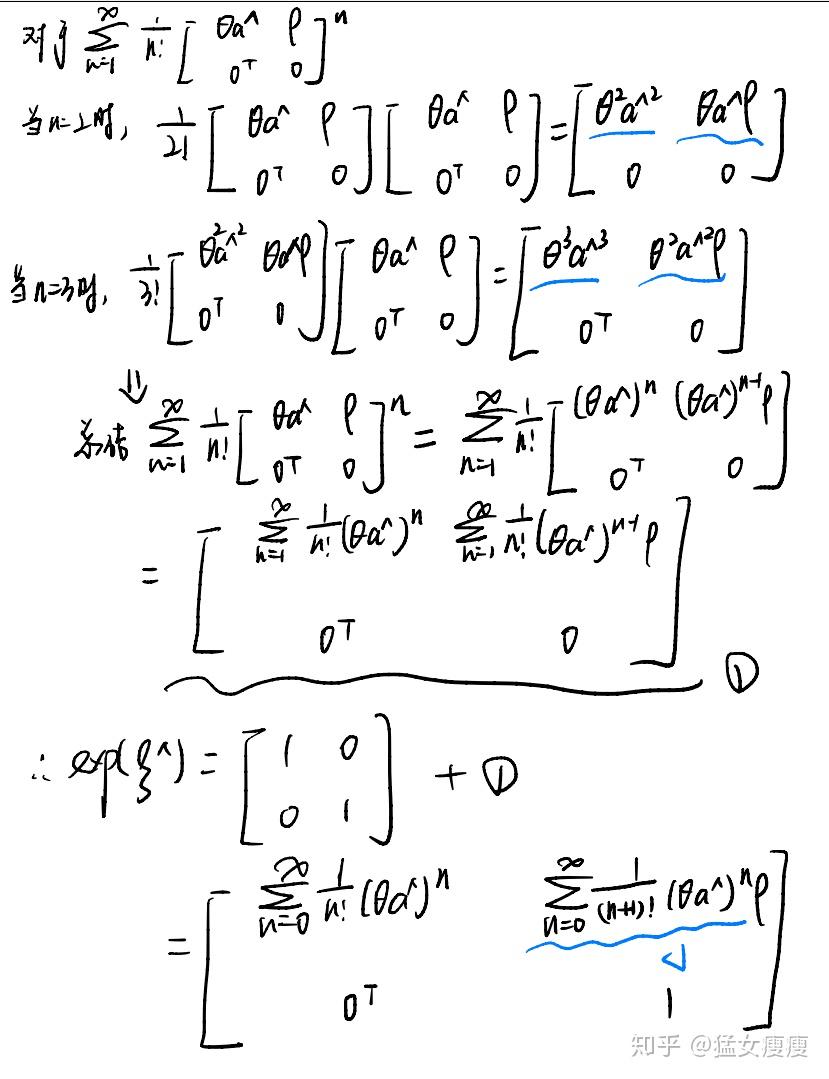 对于 ∑_{n=1}^{∞} 1/n! [ θa^ ρ ; 0ᵀ 0 ]ⁿ
当n=2时, 1/2! [ θa^ ρ ; 0ᵀ 0 ] [ θa^ ρ ; 0ᵀ 0 ] = [ θ²a^² θa^ρ ; 0 0 ]
当n=3时, 1/3! [ θ²a^² θa^ρ ; 0ᵀ 0 ] [ θa^ ρ ; 0ᵀ 0 ] = [ θ³a^³ θ²a^²ρ ; 0ᵀ 0 ]
⇓
总结 ∑_{n=1}^{∞} 1/n! [ θa^ ρ ; 0ᵀ 0 ]ⁿ = ∑_{n=1}^{∞} 1/n! [ (θa^)ⁿ (θa^)ⁿ⁻¹ρ ; 0ᵀ 0 ]
= [ ∑_{n=1}^{∞} 1/n! (θa^)ⁿ ∑_{n=1}^{∞} 1/n! (θa^)ⁿ⁻¹ρ ; 0ᵀ 0 ] ①
∴ exp(ξ^) = [ 1 0 ; 0 1 ] + ①
= [ ∑_{n=0}^{∞} 1/n! (θa^)ⁿ ∑_{n=0}^{∞} 1/(n+1)! (θa^)ⁿρ ; 0ᵀ 1 ]
J
知乎 @猛女瘦瘦